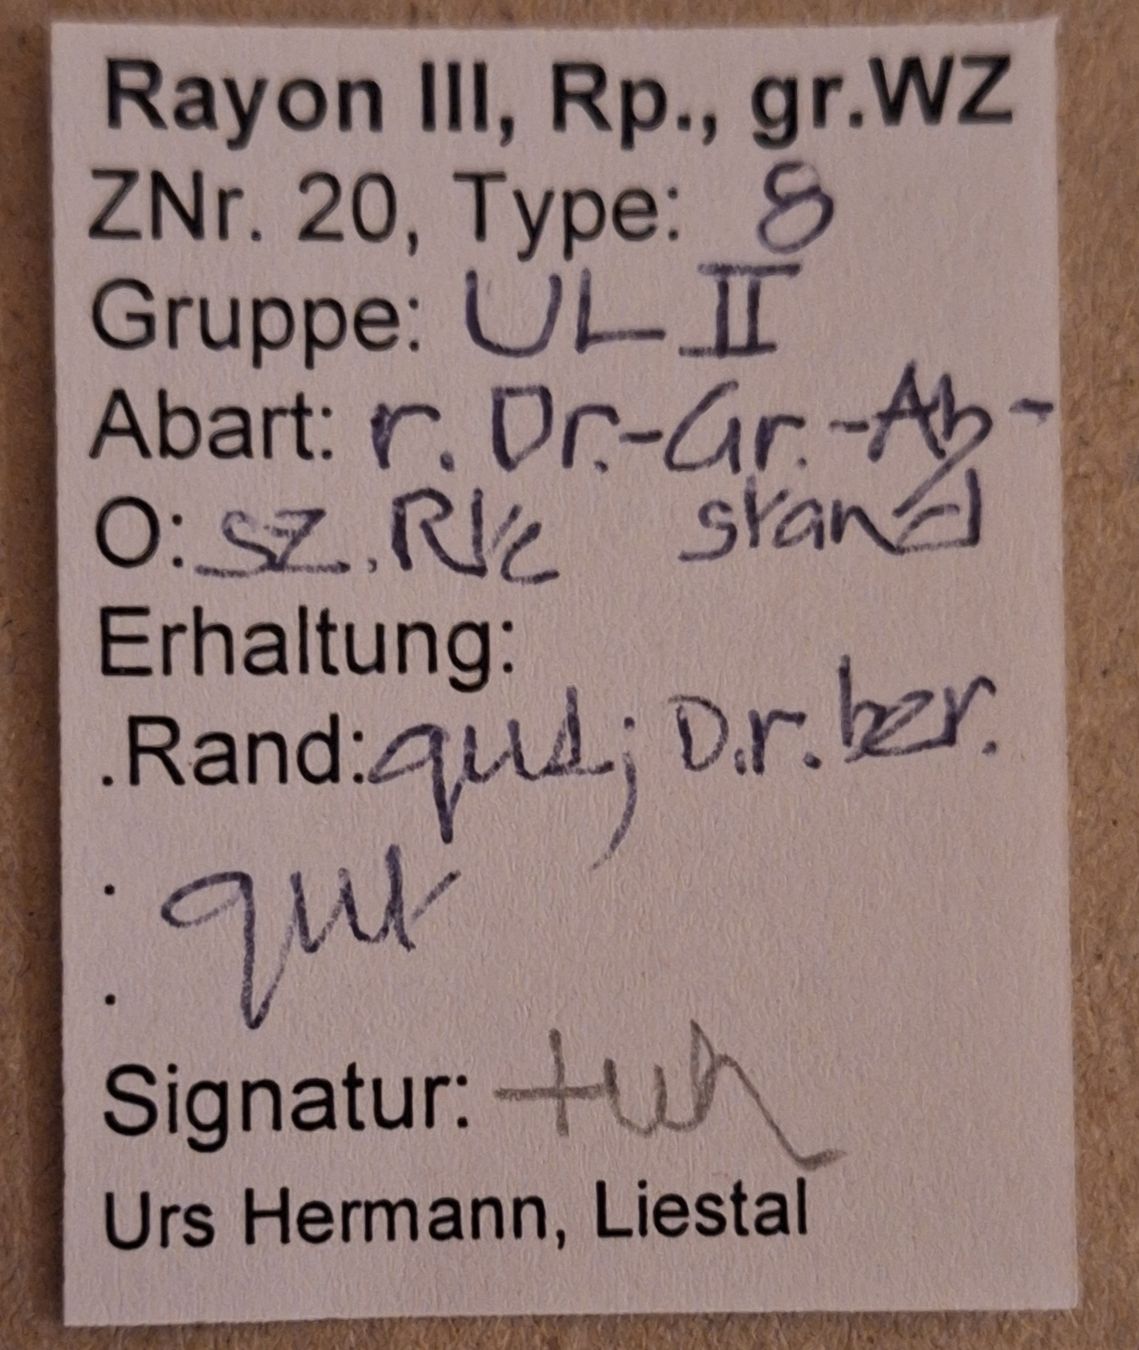 Rayon III, Rp., gr.WZ
ZNr. 20, Type: 8
Gruppe: UL II
Abart: r. Dr.-Gr.-Ab-
O: sz. Rk stand
Erhaltung:
.Rand: gut; D.r. ber.
. gut
.
Signatur:
Urs Hermann, Liestal